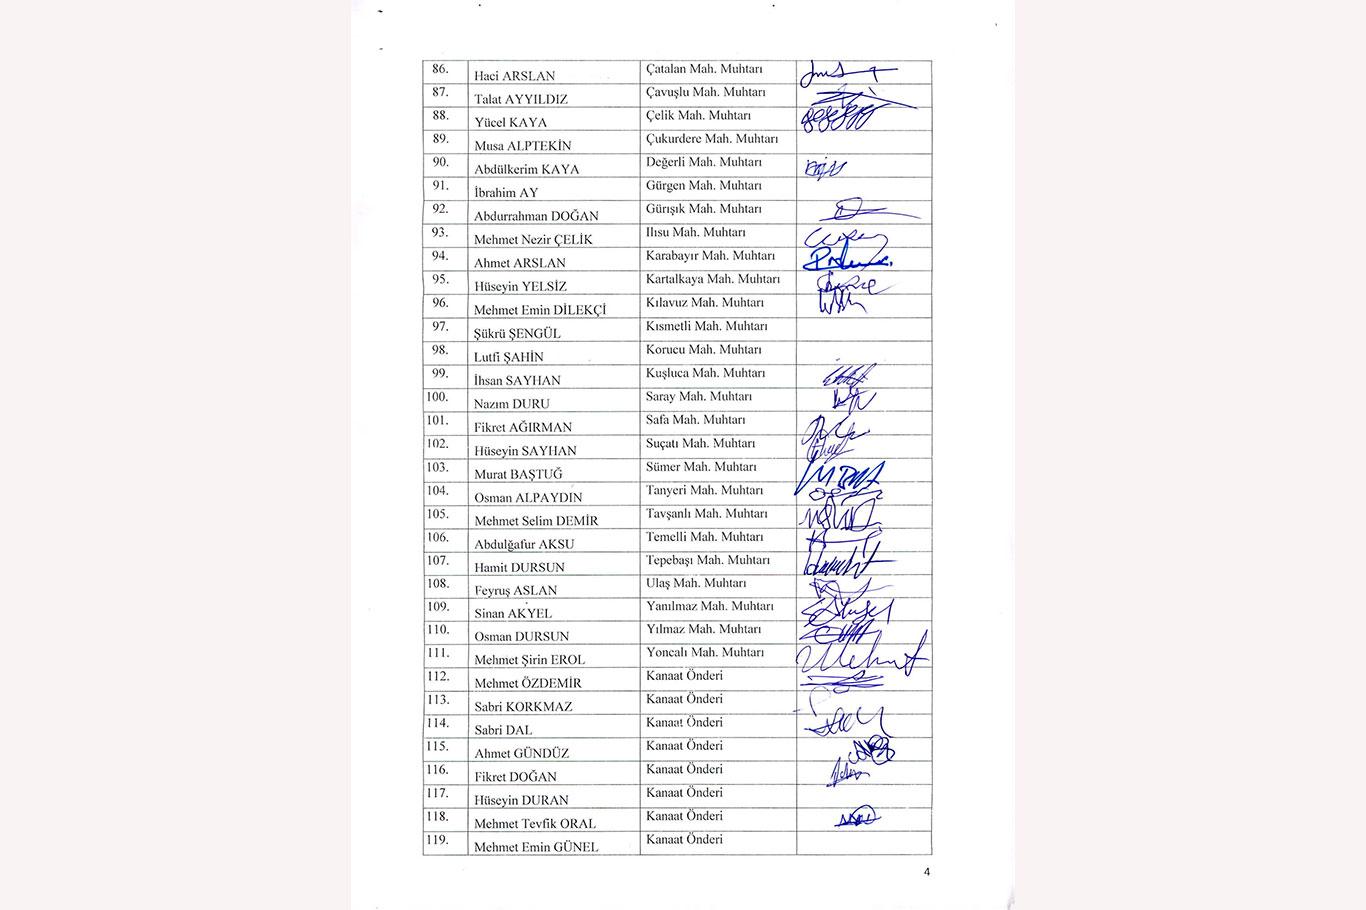 86. Haci ARSLAN Çatalan Mah. Muhtarı
87. Talat AYYILDIZ Çavuşlu Mah. Muhtarı
88. Yücel KAYA Çelik Mah. Muhtarı
89. Musa ALPTEKİN Çukurdere Mah. Muhtarı
90. Abdülkerim KAYA Değerli Mah. Muhtarı
91. İbrahim AY Gürgen Mah. Muhtarı
92. Abdurrahman DOĞAN Gürışık Mah. Muhtarı
93. Mehmet Nezir ÇELİK Ilısu Mah. Muhtarı
94. Ahmet ARSLAN Karabayır Mah. Muhtarı
95. Hüseyin YELSİZ Kartalkaya Mah. Muhtarı
96. Mehmet Emin DİLEKÇİ Kılavuz Mah. Muhtarı
97. Şükrü ŞENGÜL Kısmetli Mah. Muhtarı
98. Lutfi ŞAHİN Korucu Mah. Muhtarı
99. İhsan SAYHAN Kuşluca Mah. Muhtarı
100. Nazım DURU Saray Mah. Muhtarı
101. Fikret AĞIRMAN Safa Mah. Muhtarı
102. Hüseyin SAYHAN Suçatı Mah. Muhtarı
103. Murat BAŞTUĞ Sümer Mah. Muhtarı
104. Osman ALPAYDIN Tanyeri Mah. Muhtarı
105. Mehmet Selim DEMİR Tavşanlı Mah. Muhtarı
106. Abdulğafur AKSU Temelli Mah. Muhtarı
107. Hamit DURSUN Tepebaşı Mah. Muhtarı
108. Feyruş ASLAN Ulaş Mah. Muhtarı
109. Sinan AKYEL Yanılmaz Mah. Muhtarı
110. Osman DURSUN Yılmaz Mah. Muhtarı
111. Mehmet Şirin EROL Yoncalı Mah. Muhtarı Mehmet
112. Mehmet ÖZDEMİR Kanaat Önderi
113. Sabri KORKMAZ Kanaat Önderi
114. Sabri DAL Kanaat Önderi
115. Ahmet GÜNDÜZ Kanaat Önderi
116. Fikret DOĞAN Kanaat Önderi
117. Hüseyin DURAN Kanaat Önderi
118. Mehmet Tevfik ORAL Kanaat Önderi
119. Mehmet Emin GÜNEL Kanaat Önderi
4